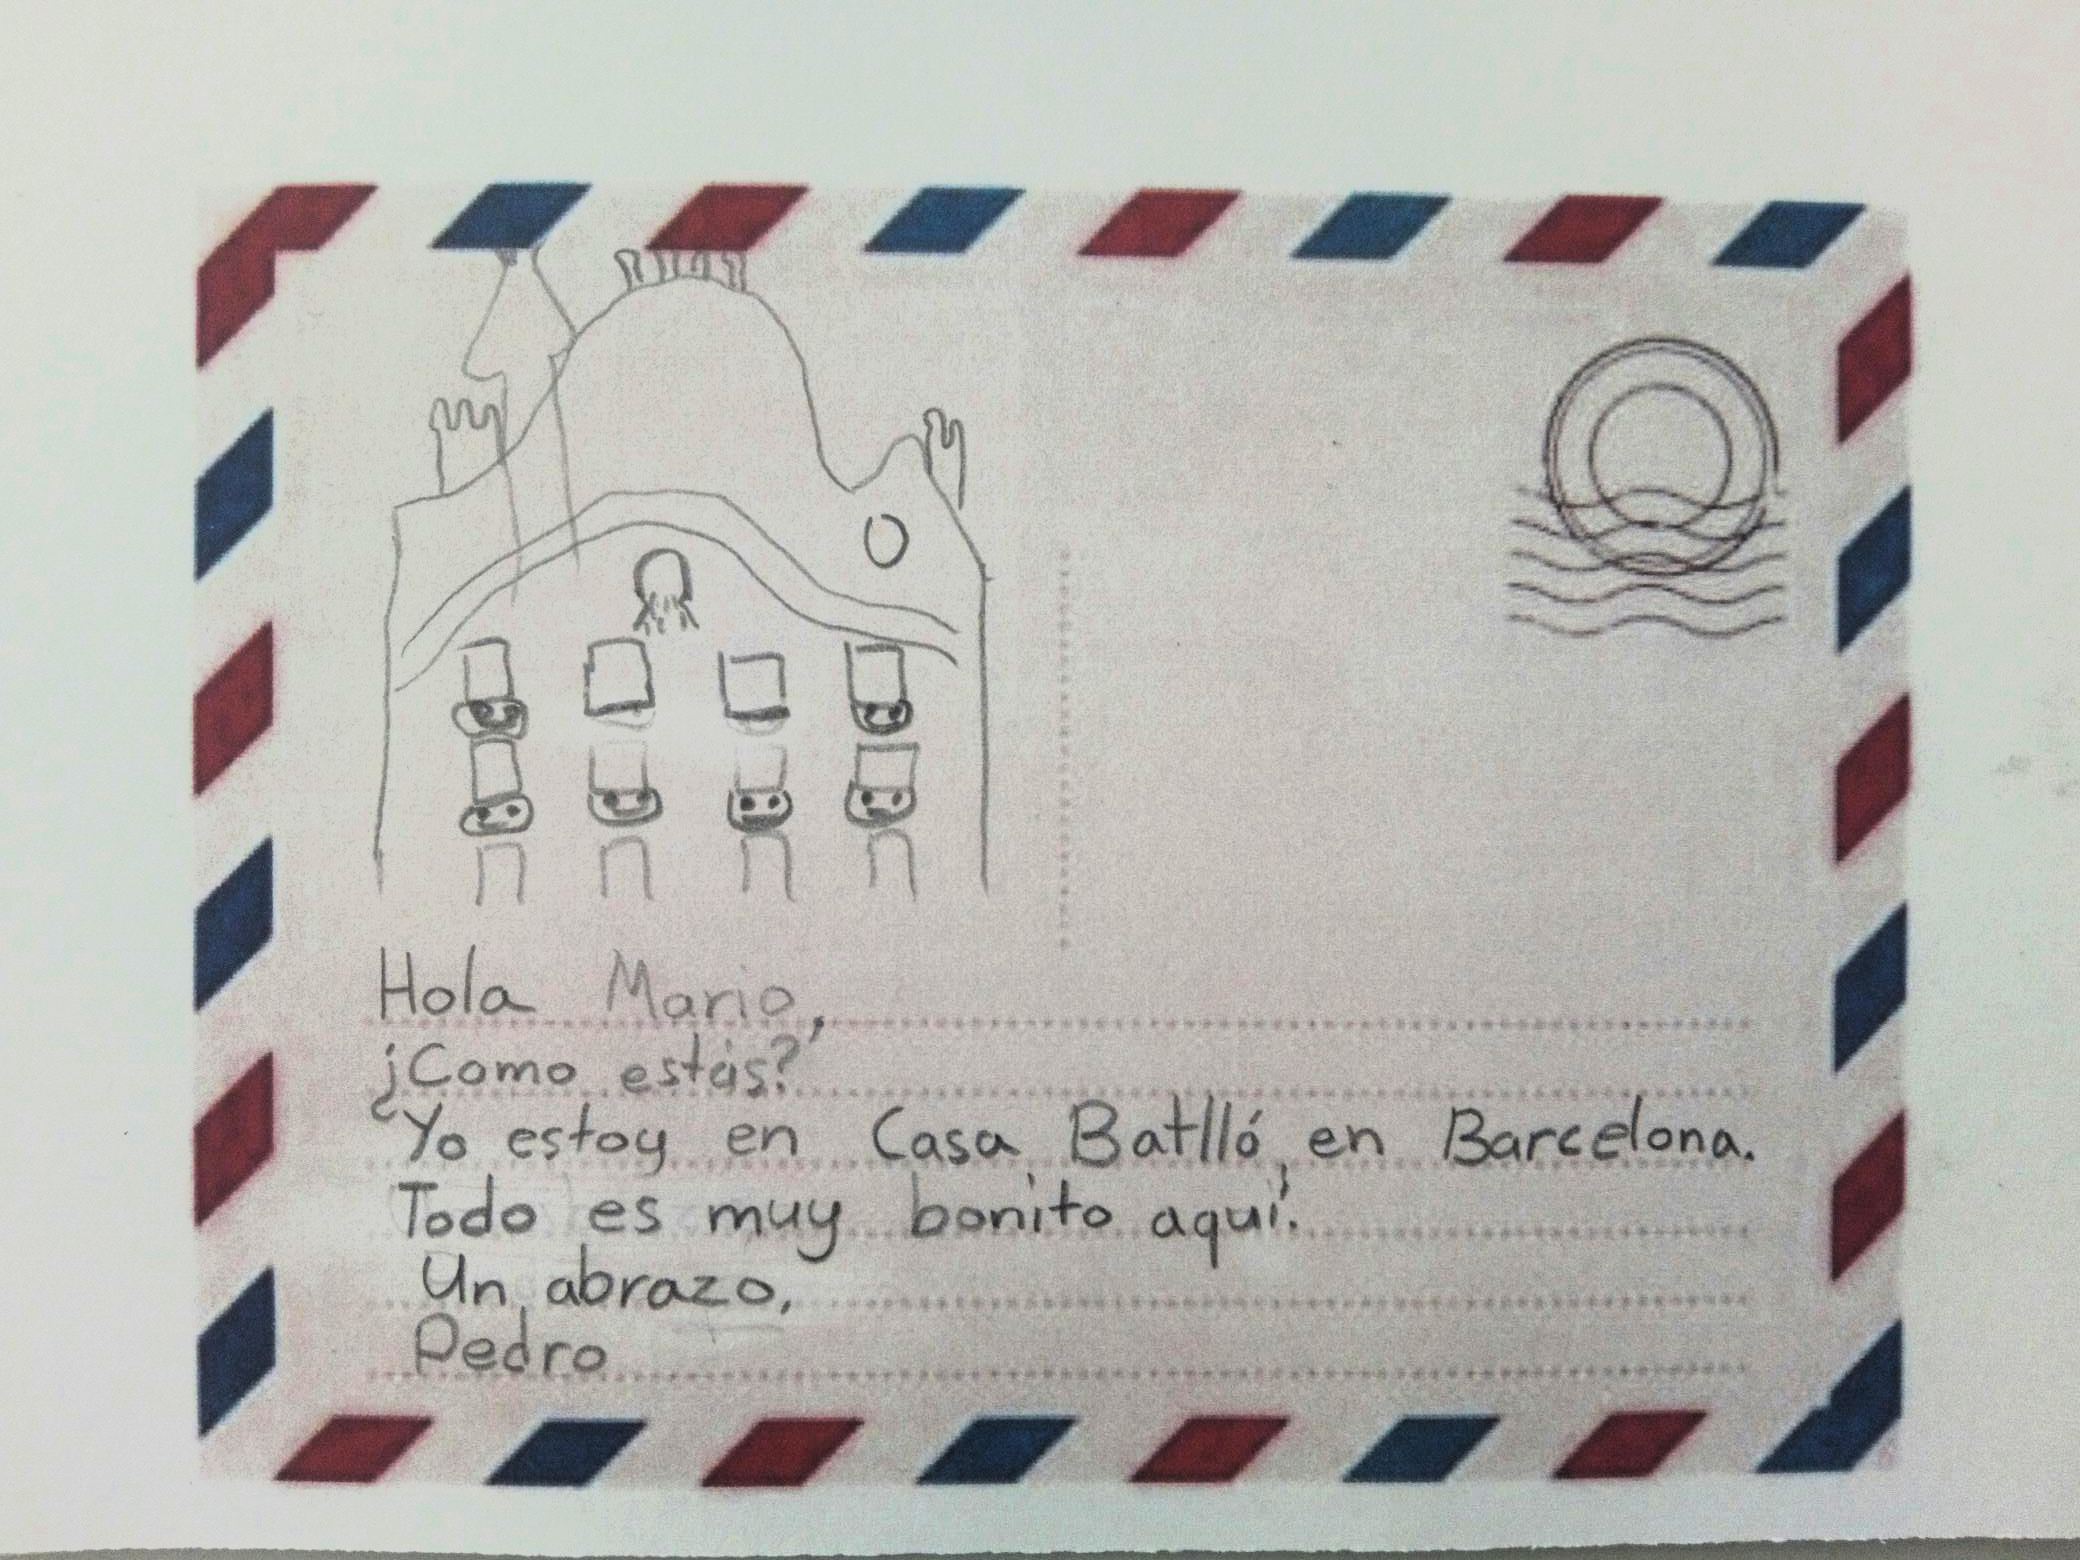 Hola Mario,
¿Como estás?
Yo estoy en Casa Batlló, en Barcelona.
Todo es muy bonito aquí.
Un abrazo,
Pedro